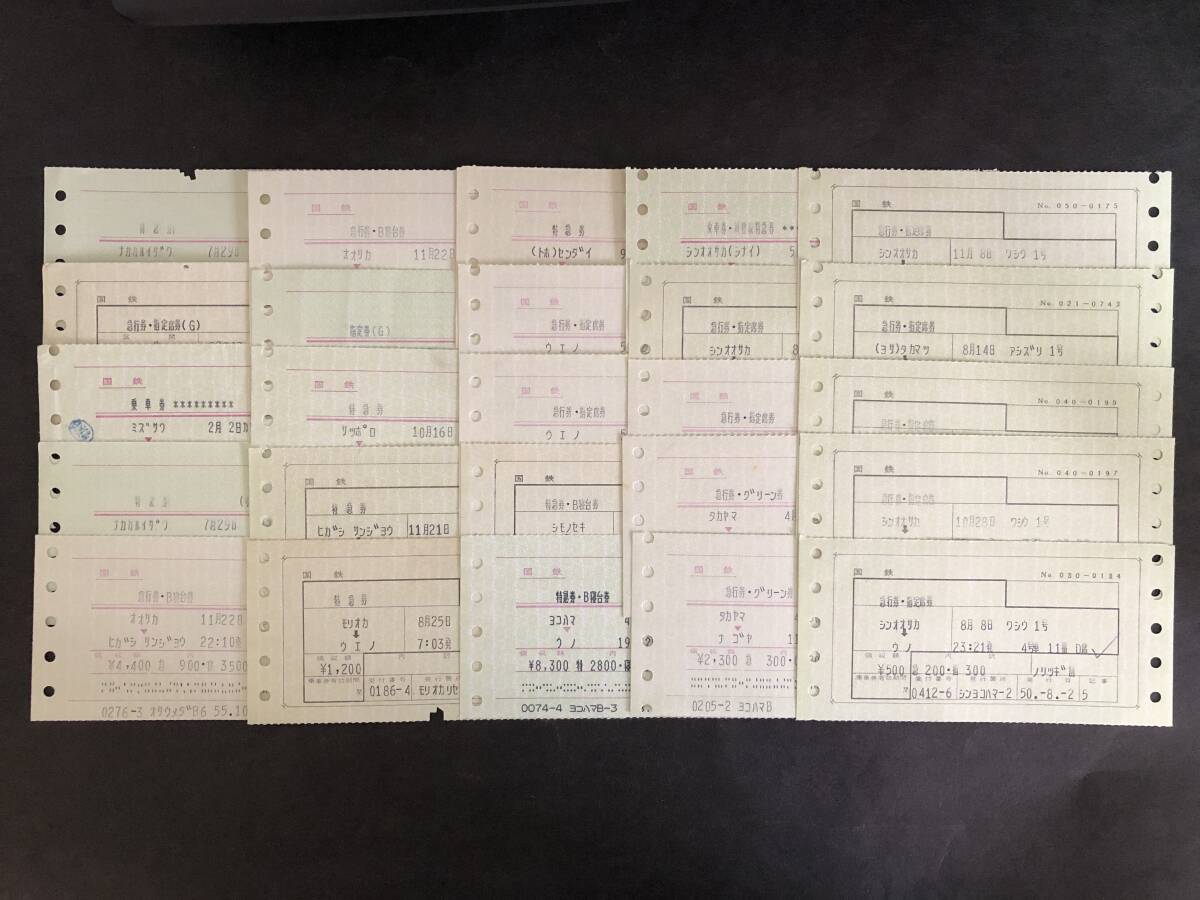 ﾅｶｶﾙｲｻﾞﾜ 7月29日
国 鉄
急行券・指定席券(G)
国 鉄
乗 車 券 *********
ﾐｽﾞｻﾜ 2月 2日
ﾅｶｶﾙｲｻﾞﾜ 7月29日
国 鉄
急行券・B寝台券
ｵｵｻｶ 11月22日
ﾋｶﾞｼ ｻﾝｼﾞﾖｳ 22:10発
領 収 額
¥4,400 急 900・寝 3500
0276-3 ｵｸｳﾒﾀﾞB6 55.10
国 鉄
急行券・B寝台券
ｵｵｻｶ 11月22
指定券(G)
国 鉄
特 急 券
ｻﾂﾎﾟﾛ 10月16日
国 鉄
特 急 券
ﾋｶﾞｼ ｻﾝｼﾞﾖｳ 11月21日
国 鉄
特 急 券
ﾓﾘｵｶ 8月25日
ｳｴﾉ 7:03発
領 収 額 内
¥1,200
0186-4 ﾓﾘｵｶﾘｾ
国 鉄
特 急 券
(ﾄﾎ)ｾﾝﾀﾞｲ 9
国 鉄
急行券・指定席券
ｳ ｴ ﾉ
急行券・指定席券
ｳ ｴ ﾉ
国 鉄
特急券・B寝台券
ｼﾓﾉｾｷ
国 鉄
特急券・B寝台券
ﾖｺﾊﾏ
ｳﾉ 19
領 収 額
¥8,300 特 2800・寝
0074-4 ﾖｺﾊﾏB-3
国 鉄
ｼﾝｵｵｻｶ(ｼﾅｲ) 5
国 鉄
急行券・指定席券
ｼﾝｵｵｻｶ 8
国 鉄
急行券・指定席券
国 鉄
急行券・グリーン券
ﾀｶﾔﾏ 4
国 鉄
急行券・グリーン券
ﾀｶﾔﾏ
ﾅ ｺﾞﾔ 11
領 収 額
¥2,300 急 300・
0205-2 ﾖｺﾊﾏB
国 鉄 No. 050-0175
急行券・指定席券
ｼﾝｵｵｻｶ 11月 8日 ﾜｼｳ 1号
国 鉄 No. 021-0742
急行券・指定席券
(ﾖｻ)ﾀｶﾏﾂ 8月14日 ｱｼｽﾞﾘ 1号
国 鉄 No. 040-0199
急行券・指定席券
国 鉄 No. 040-0197
急行券・指定席券
ｼﾝｵｵｻｶ 10月28日 ﾜｼｳ 1号
国 鉄 No. 030-0184
急行券・指定席券
ｼﾝｵｵｻｶ 8月 8日 ﾜｼｳ 1号
ｳﾉ 23:21発 4号車 11番 D席
領 収 額 内 訳
¥500 急 200・指 300
0412-6 ｼﾝﾖｺﾊﾏ-2 50.-8.-2 5